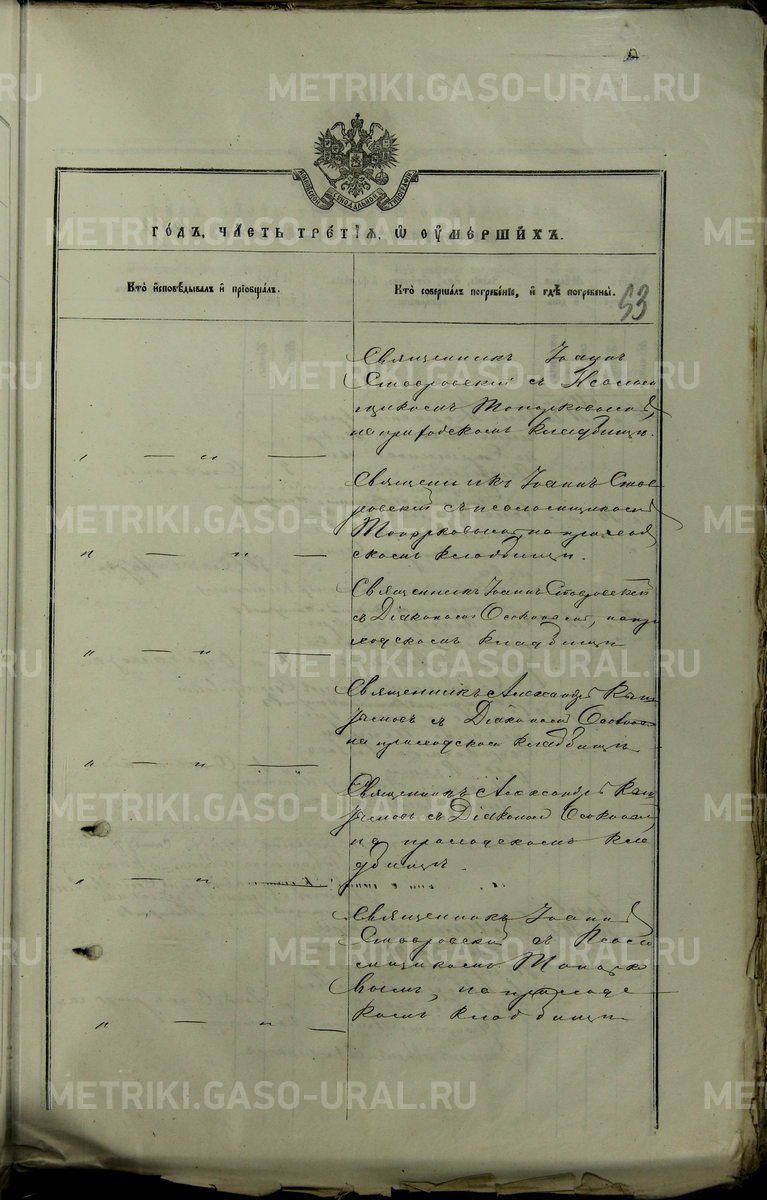 METRIKI.GASO-URAL.RU
МОСКОВСКОЙ СѴНОДАЛЬНОЙ ТИПОГРАФІИ
ГОДЪ, ЧАСТЬ ТРЕТІЯ, Ѡ ОУМЕРШИХЪ.
Кто исповѣдывалъ и пріобщалъ.
Кто совершалъ погребеніе, и гдѣ погребены.
53
Священникъ Іоаннъ
Ставровскій съ Псалом
щикомъ Топорковымъ,
на приходскомъ кладбищѣ.
" — " —
Священникъ Іоаннъ Став
ровскій съ псаломщикомъ
Топорковымъ на приход
скомъ кладбищѣ.
" — " —
Священникъ Іоаннъ Ставровскій
съ Діакономъ, на при
ходскомъ кладбищѣ
" — " —
Священникъ Александръ
съ Діакономъ
на приходскомъ кладбищѣ
" — " —
Священникъ Александръ
съ Діакономъ
на приходскомъ кла
дбищѣ.
" — " —
Священникъ Іоаннъ
Ставровскій съ Псало
мщикомъ Топорко
вымъ, на приходс
комъ кладбищѣ
" — " —